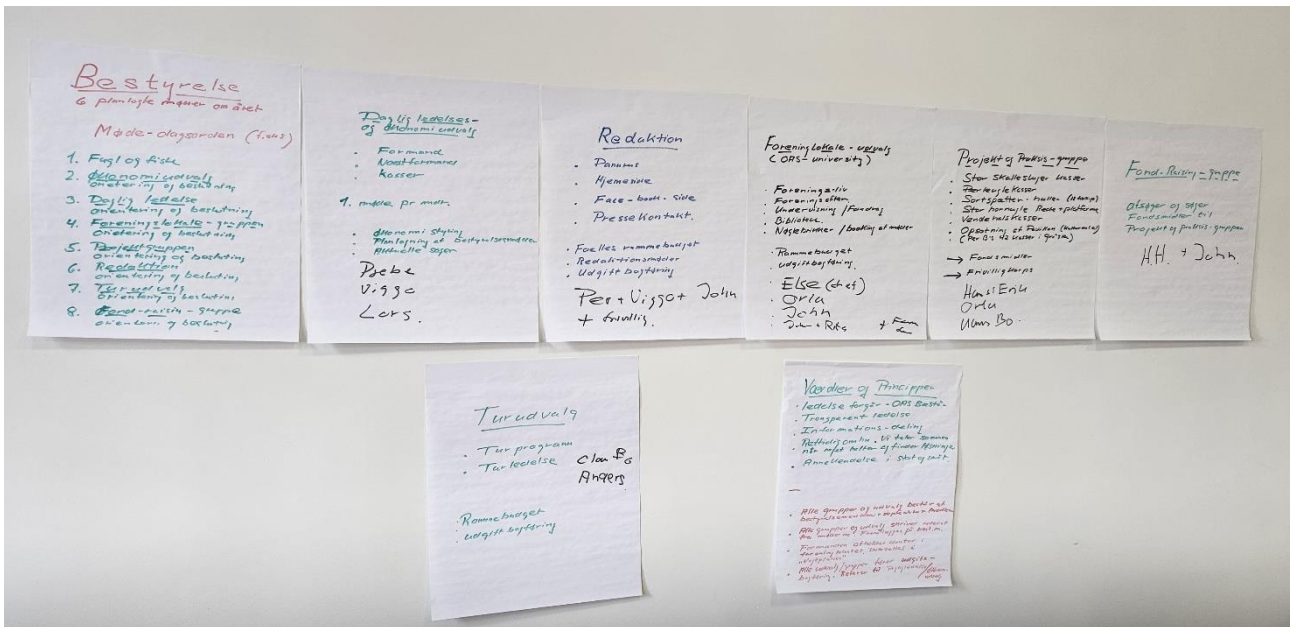 Bestyrelse
6 planlagte møder om året
Møde-dagsorden (fast)
1. Fugl og fisk
2. Økonomiudvalg
orientering og beslutning
3. Daglig ledelse
orientering og beslutning
4. Foreningslokale-gruppen
orientering og beslutning
5. Projektgruppen
orientering og beslutning
6. Redaktion
orientering og beslutning
7. Turudvalg
orientering og beslutning
8. Fond-raisin-gruppe
orientering og beslutning
Daglig ledelses-
og økonomiudvalg
· Formand
· Næstformand
· Kasser
1. møde pr mdr.
· økonomi styring
· Planlægning af bestyrelsesmøder
· Aktuelle sager
Prebe
Viggo
Lars.
Redaktion
· Panurus
· Hjemeside
· Face-book-side
· Pressekontakt.
· Fælles rammebudget
· Redaktionsmøder
· Udgift bogføring
Per + Viggo + John
+ frivillig.
Foreningslokale-udvalg
(OAS-university)
· Forenings-liv
· Foreningsaften
· Undervisning / Foredrag
· Bibliotek
· Nøglebrikker / booking af møder
· Rammebudget
· udgift bogføring
· Else (chef)
· Orla
· John
Projekt og Praksis-gruppe
· Stor skallesluger kasser
· Perleugle kasser
· Sortspætter-huller
· Stor hornugle Rede + platforme
· Vendehalskasser
→ Fondsmidler
→ Frivilligkorps
Hans Erik
Orla
Claus Bo.
Fond-Raising-gruppe
Afsøger og søger
Fondsmidler til
Projekt og praksis-gruppen
H.H. + John.
Turudvalg
· Turprogram
· Turledelse
Claus Bo
Anders
· Rammebudget
· udgift bogføring
Værdier og Principper
· ledelse forgår - OAS Består
· Transparent ledelse
· Informations-deling
· Rettidig omhu. Vi taler sammen
når noget halter og finder løsninger
· Anvendelse i stort og småt.
—
· Alle grupper og udvalg består af
· Alle grupper og udvalg skriver referat
· Formanden
· Alle udvalg/grupper fører udgifts-
bogføring.